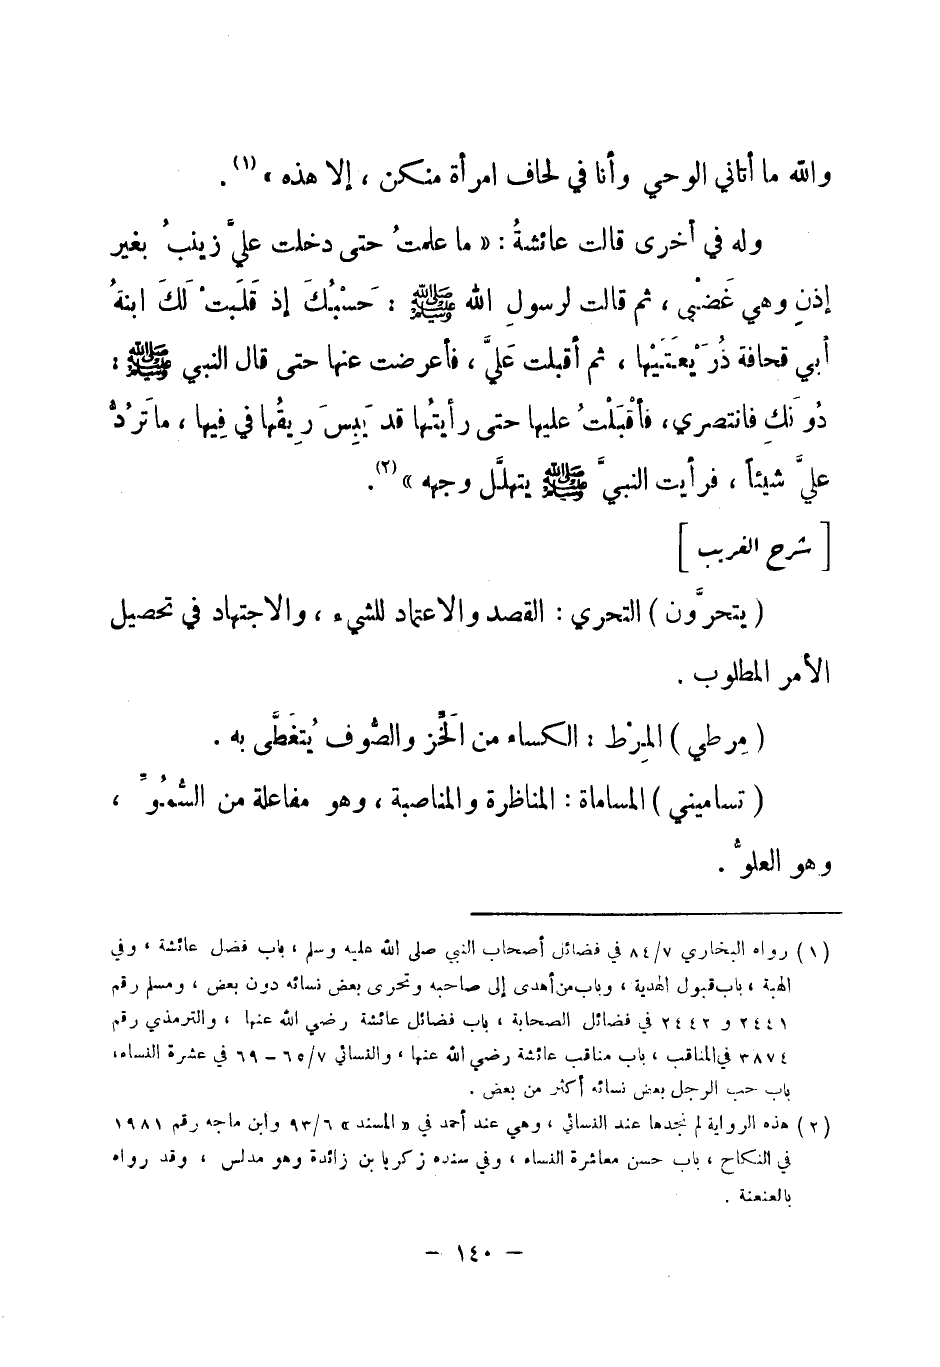 والله ما أتاني الوحي وأنا في لحاف امرأة منكن ، إلا هذه » (١).
وله في أخرى قالت عائشةُ : « ما علمتُ حتى دخلت عليَّ زينبُ بغير
إذنٍ وهي غَضْبى ، ثم قالت لرسولِ الله ﷺ : حَسْبُكَ إذ قَلَبَتْ لَكَ ابنةُ
أبي قحافة ذُرَيْعَتَيْها ، ثم أقبلت عَليَّ ، فأعرضت عنها حتى قال النبي ﷺ :
دُونَكِ فانتصري، فأقْبَلْتُ عليها حتى رأيتُها قد يَبِسَ رِيقُها في فِيها ، ما تَرُدُّ
عليَّ شيئاً ، فرأيت النبيَّ ﷺ يتهلَّل وجهه » (٢).
[ شرح الغريب ]
( يتحرَّون ) التحري : القصد والاعتماد للشيء ، والاجتهاد في تحصيل
الأمر المطلوب .
( مِرطي ) المِرْط : الكساء من الخَزِّ والصُّوف يُتغَطَّى به .
( تساميني ) المساماة : المناظرة والمناصبة ، وهو مفاعلة من السُّمُوِّ ،
وهو العلوُّ .
(١) رواه البخاري ٨٤/٧ في فضائل أصحاب النبي صلى الله عليه وسلم ، باب فضل عائشة ، وفي
الهبة ، باب قبول الهدية ، وباب من أهدى إلى صاحبه وتحرى بعض نسائه دون بعض ، ومسلم رقم
٢٤٤١ و ٢٤٤٢ في فضائل الصحابة ، باب فضائل عائشة رضي الله عنها ، والترمذي رقم
٣٨٧٤ في المناقب ، باب مناقب عائشة رضي الله عنها ، والنسائي ٦٥/٧ - ٦٩ في عشرة النساء،
باب حب الرجل بعض نسائه أكثر من بعض .
(٢) هذه الرواية لم نجدها عند النسائي ، وهي عند أحمد في « المسند » ٩٣/٦ وابن ماجه رقم ١٩٨١
في النكاح ، باب حسن معاشرة النساء ، وفي سنده زكريا بن زائدة وهو مدلس ، وقد رواه
بالعنعنة .
- ١٤٠ -